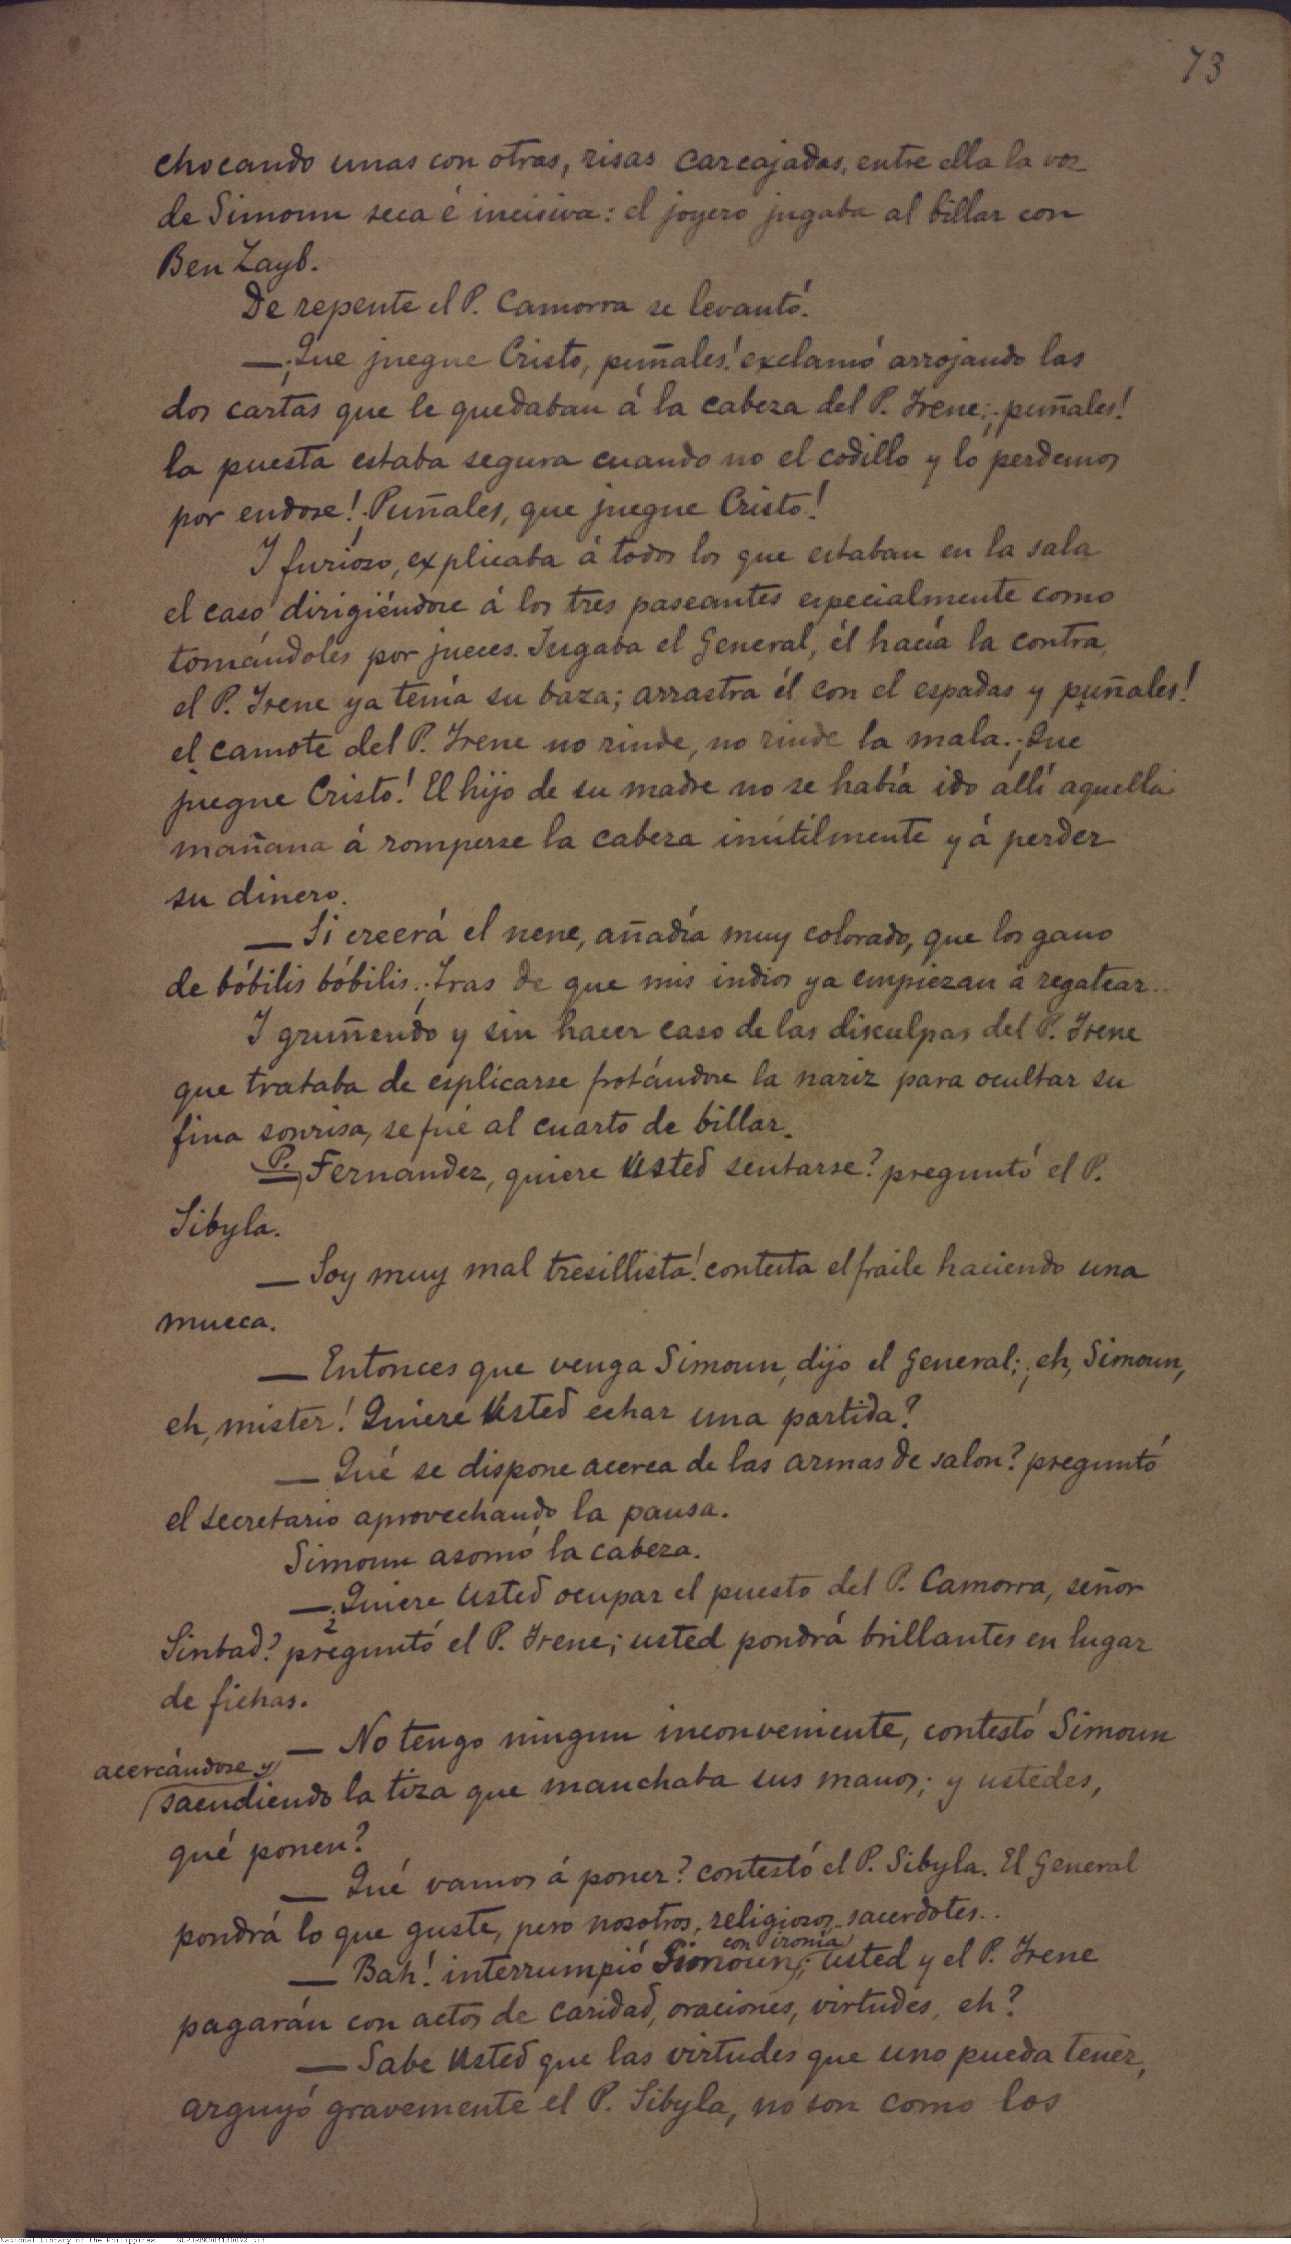 73
chocando unas con otras, risas carcajadas, entre ella la voz
de Simoun seca é incisiva: el joyero jugaba al billar con
Ben Zayb.
De repente el P. Camorra se levantó.
— ¡Que juegue Cristo, puñales! exclamó arrojando las
dos cartas que le quedaban á la cabeza del P. Irene; ¡puñales!
la puesta estaba segura cuando no el codillo y lo perdemos
por endose! ¡Puñales, que juegue Cristo!
Y furioso, explicaba á todos los que estaban en la sala
el caso dirigiéndose á los tres paseantes especialmente como
tomándoles por jueces. Jugaba el General, él hacía la contra,
el P. Irene ya tenía su baza; arrastra él con el espadas y ¡puñales!
el camote del P. Irene no rinde, no rinde la mala. ¡Que
juegue Cristo! El hijo de su madre no se había ido allí aquella
mañana á romperse la cabeza inútilmente y á perder
su dinero.
— Si creerá el nene, añadía muy colorado, que los gano
de bóbilis bóbilis. ¡Tras de que mis indios ya empiezan á regatear..
Y gruñendo y sin hacer caso de las disculpas del P. Irene
que trataba de esplicarse frotándose la nariz para ocultar su
fina sonrisa, se fué al cuarto de billar.
— P. Fernandez, quiere Usted sentarse? preguntó el P.
Sibyla.
— Soy muy mal tresillista! contesta el fraile haciendo una
mueca.
— Entonces que venga Simoun, dijo el General; ¡eh, Simoun,
eh, mister! Quiere Usted echar una partida?
— Qué se dispone acerca de las armas de salon? preguntó
el secretario aprovechando la pausa.
Simoun asomó la cabeza.
— ¿Quiere Usted ocupar el puesto del P. Camorra, señor
Sinbad? preguntó el P. Irene; usted pondrá brillantes en lugar
de fichas.
— No tengo ningun inconveniente, contestó Simoun
acercándose y
sacudiendo la tiza que manchaba sus manos; y ustedes,
qué ponen?
— Qué vamos á poner? contestó el P. Sibyla. El General
pondrá lo que guste, pero nosotros, religiosos, sacerdotes..
con ironía
— Bah! interrumpió Simoun; usted y el P. Irene
pagarán con actos de caridad, oraciones, virtudes, eh?
— Sabe Usted que las virtudes que uno pueda tener,
arguyó gravemente el P. Sibyla, no son como los